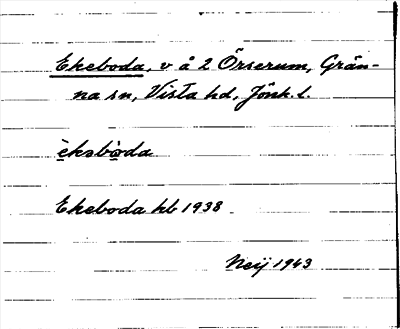 Ekeboda, v å 2 Örserum, Grän-
na sn, Vista hd, Jönk. l.
èksbòda
Ekeboda kb 1938
Neij 1943